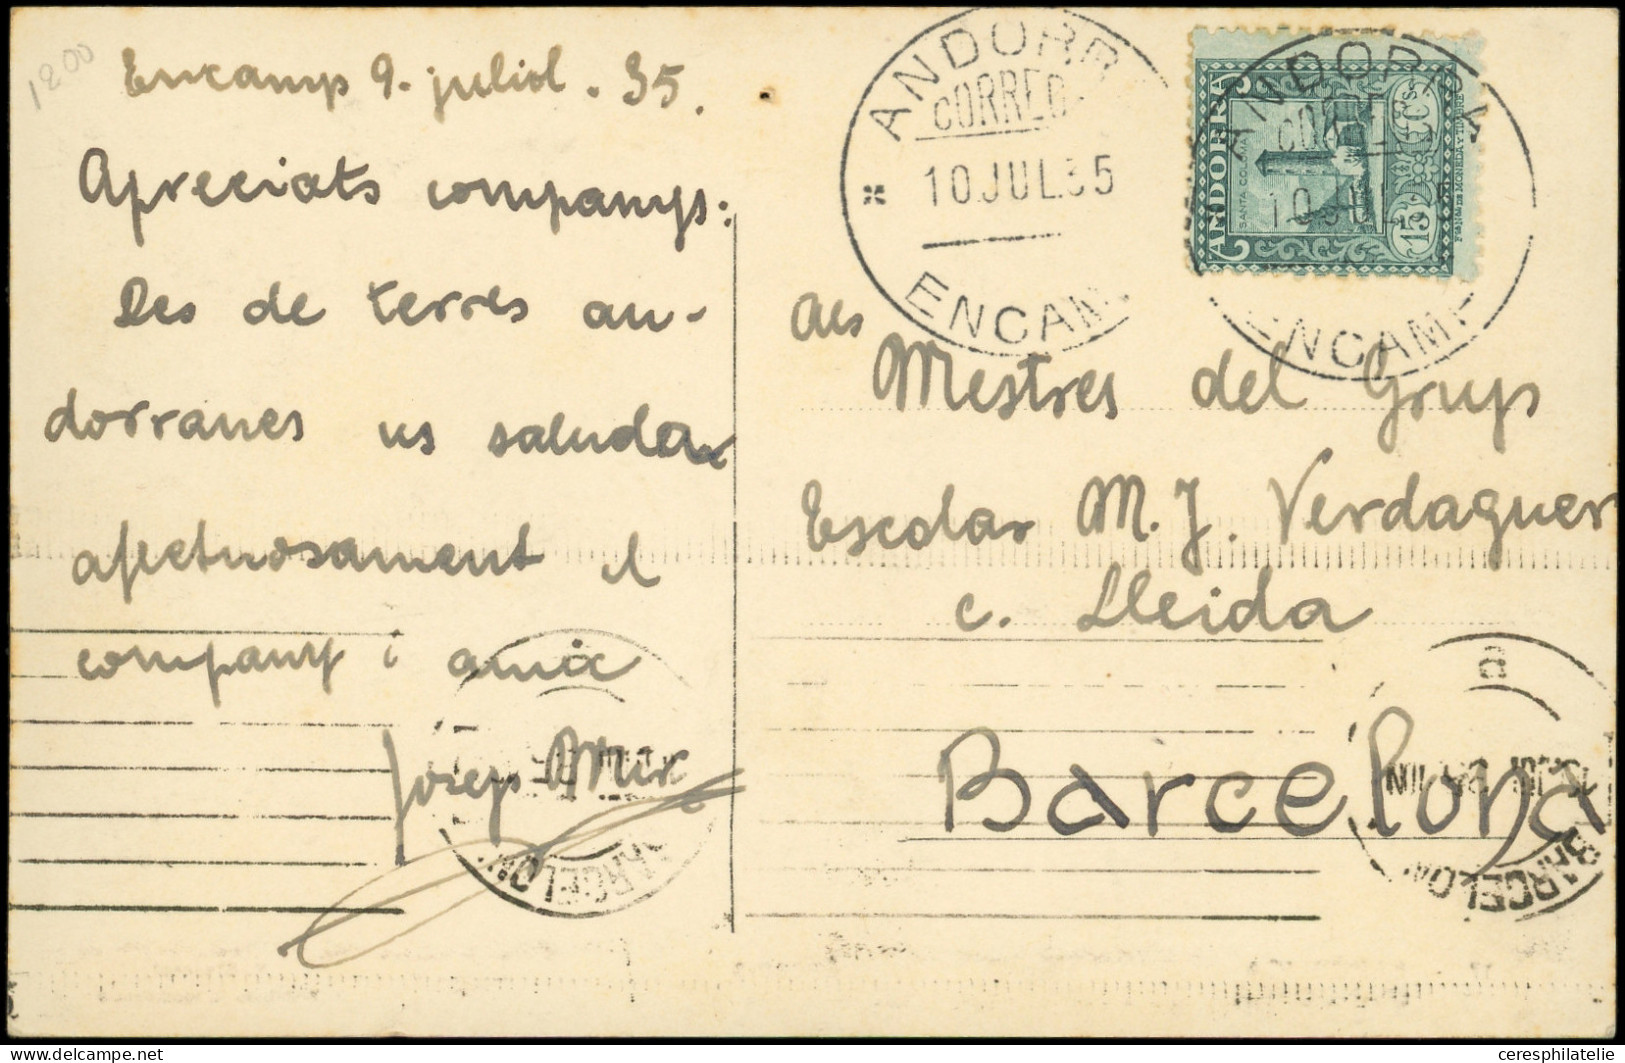 1200
Encamp 9. juliol. 35.
Apreciats companys:
Des de terres an-
dorranes us saluda
afectuosament el
company i amic
Josep Mir
ANDORRA
CORREO
10.JUL.35
ENCAMP
ANDORRA
CORREO
10.JUL.35
ENCAMP
ANDORRA
SANTA COLOMA
15 Cs
15
Als
Mestres del Grup
Escolar M. J. Verdaguer
c. Lleida
Barcelona
BARCELON
BARCELON
ceresphilatelie